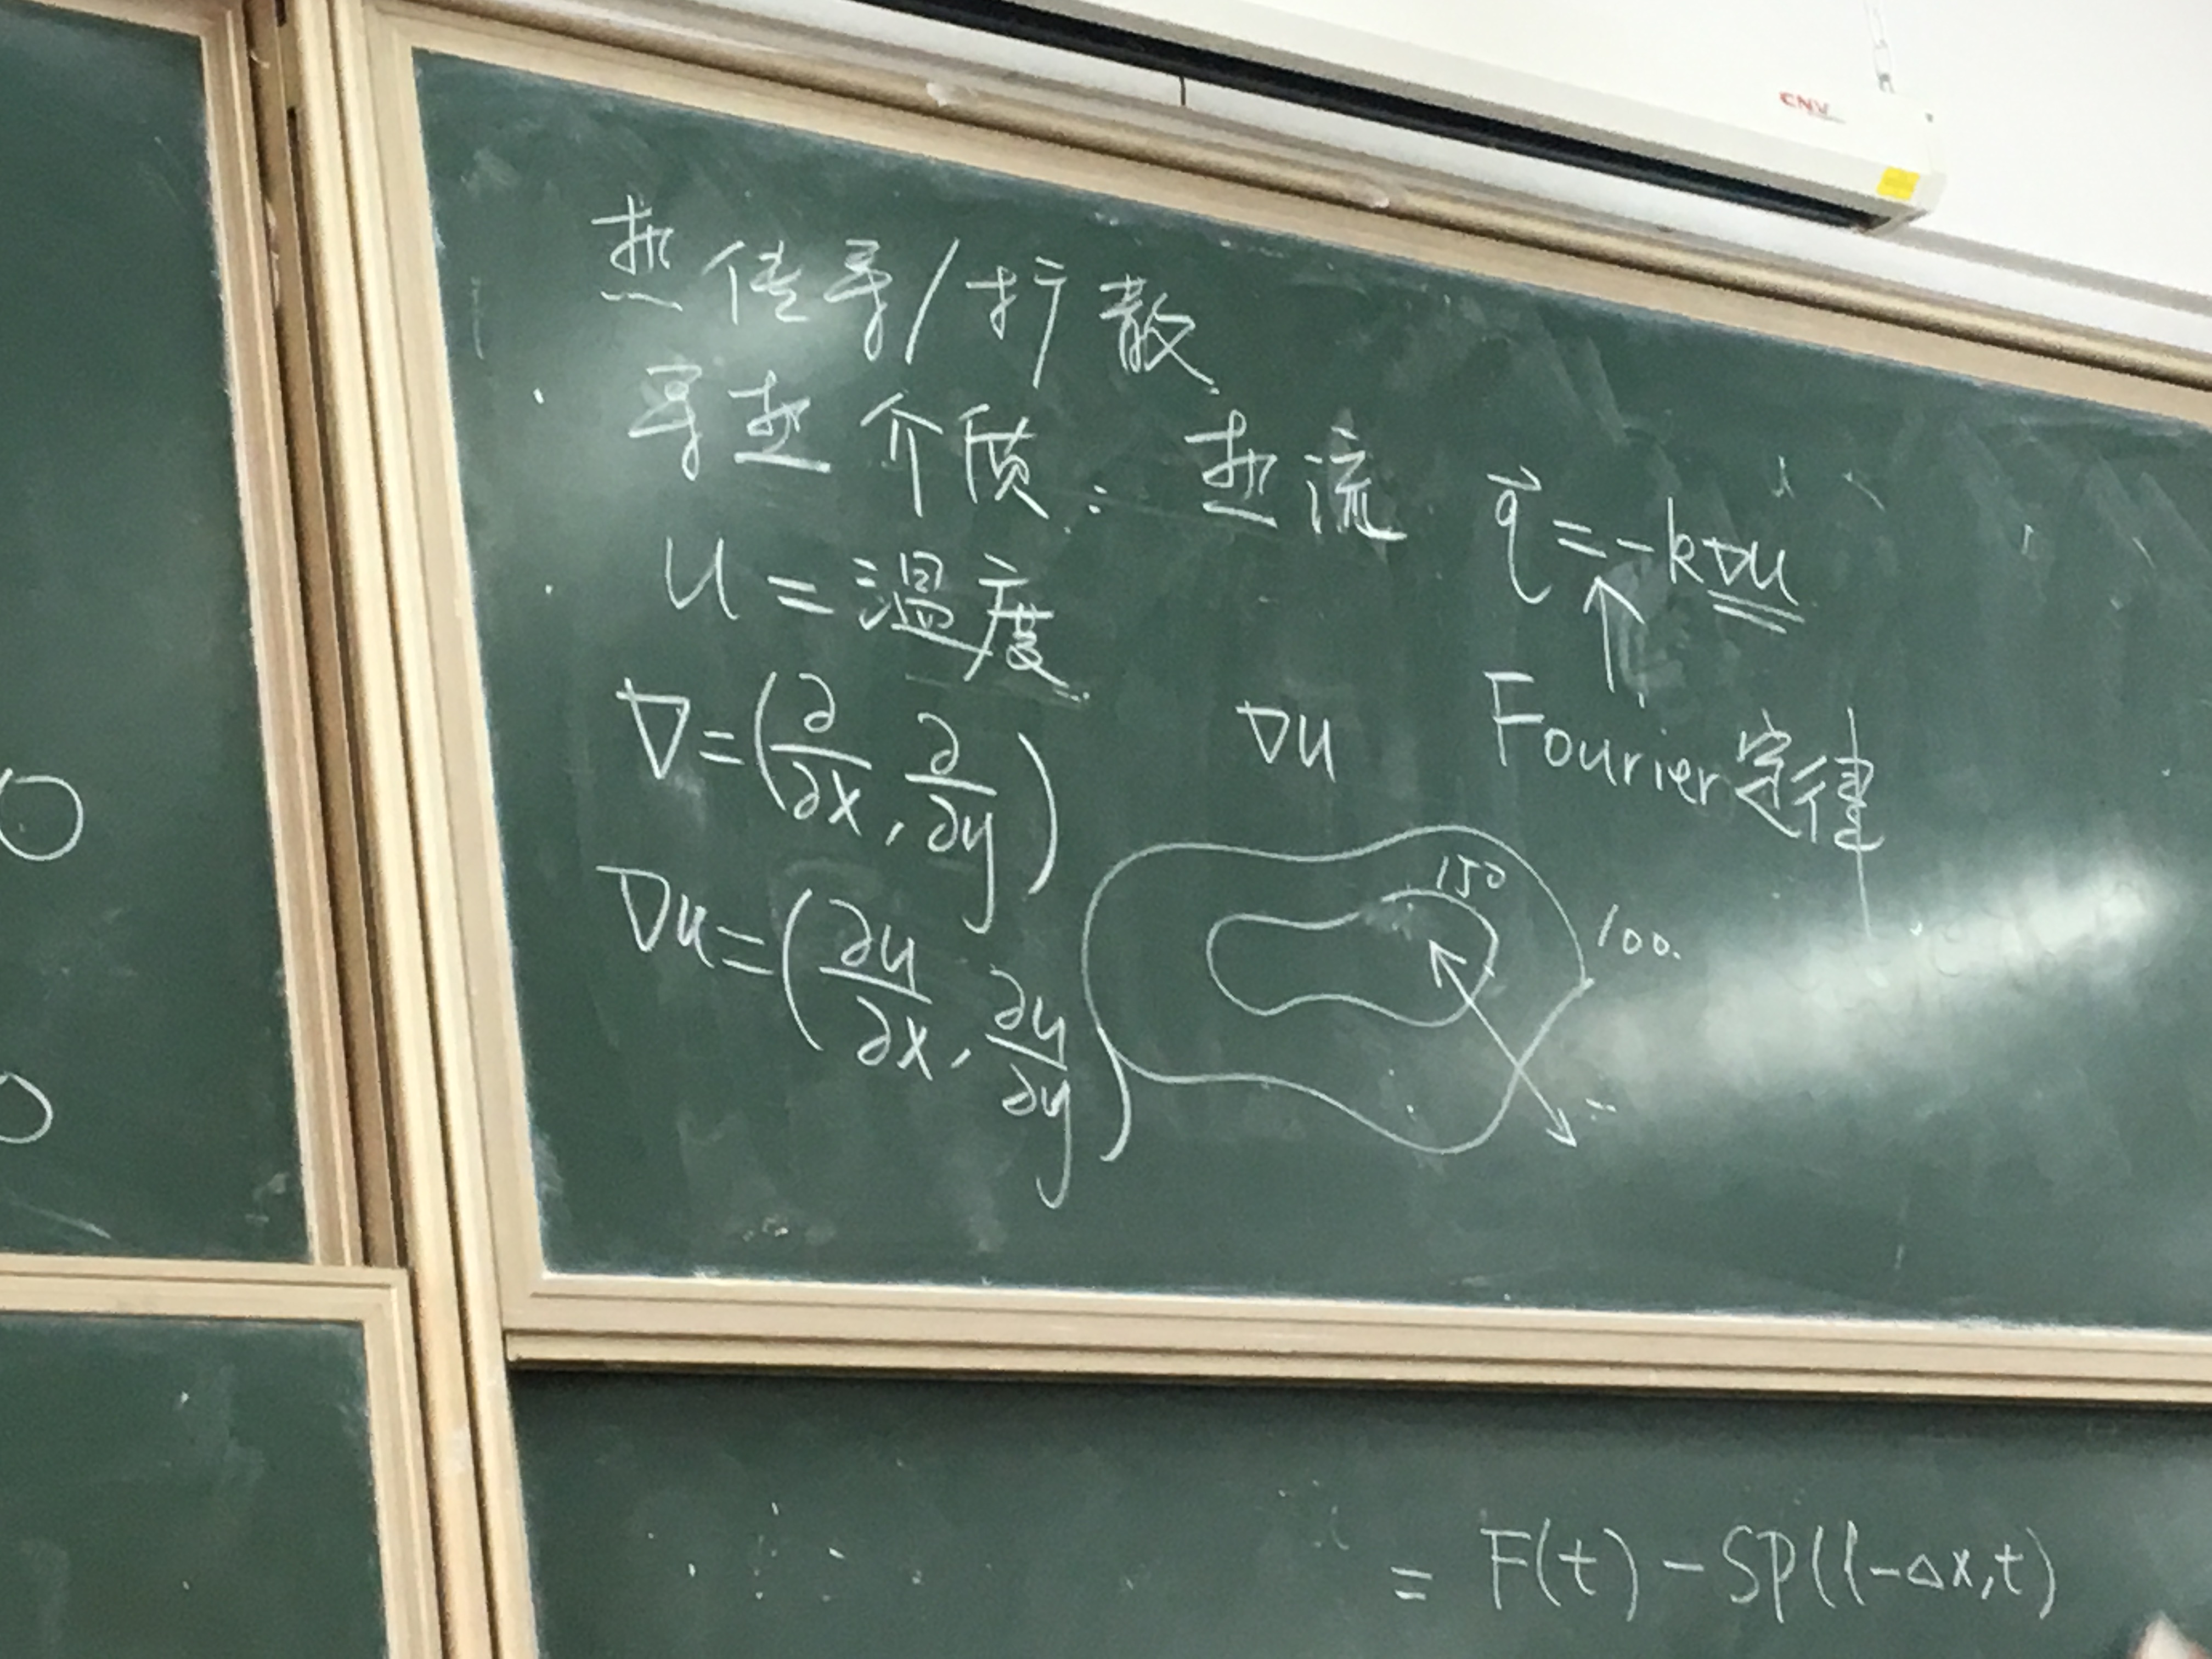 CNV
热传导/扩散
导热介质: 热流 q⃗ = -k∇u
u = 温度
Fourier定律
∇ = (∂/∂x, ∂/∂y)
∇u
∇u = (∂u/∂x, ∂u/∂y)
150
100
= F(t) - SP(l-Δx,t)